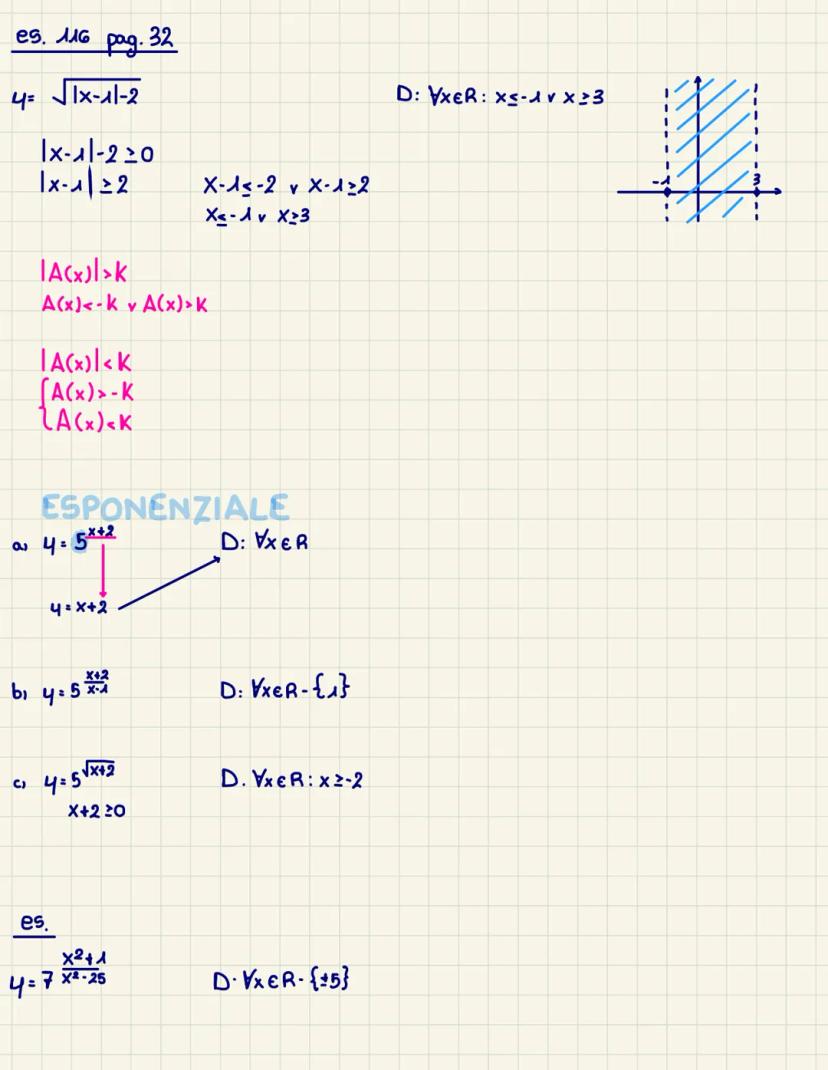 es. 116 pag. 32
y= √|x-1|-2
D: ∀x∈R: x≤-1 v x≥3
|x-1|-2≥0
|x-1|≥2
x-1≤-2 v x-1≥2
x≤-1 v x≥3
-1 3
|A(x)|>K
A(x)<-k v A(x)>K
|A(x)|<K
{A(x)>-K
A(x)<K
ESPONENZIALE
a) y=5^(x+2)
D: ∀x∈R
y=x+2
b) y=5^((x+2)/(x-1))
D: ∀x∈R-{1}
c) y=5^(√x+2)
D. ∀x∈R: x≥-2
x+2≥0
es.
y=7^((x²+1)/(x²-25))
D. ∀x∈R-{±5}